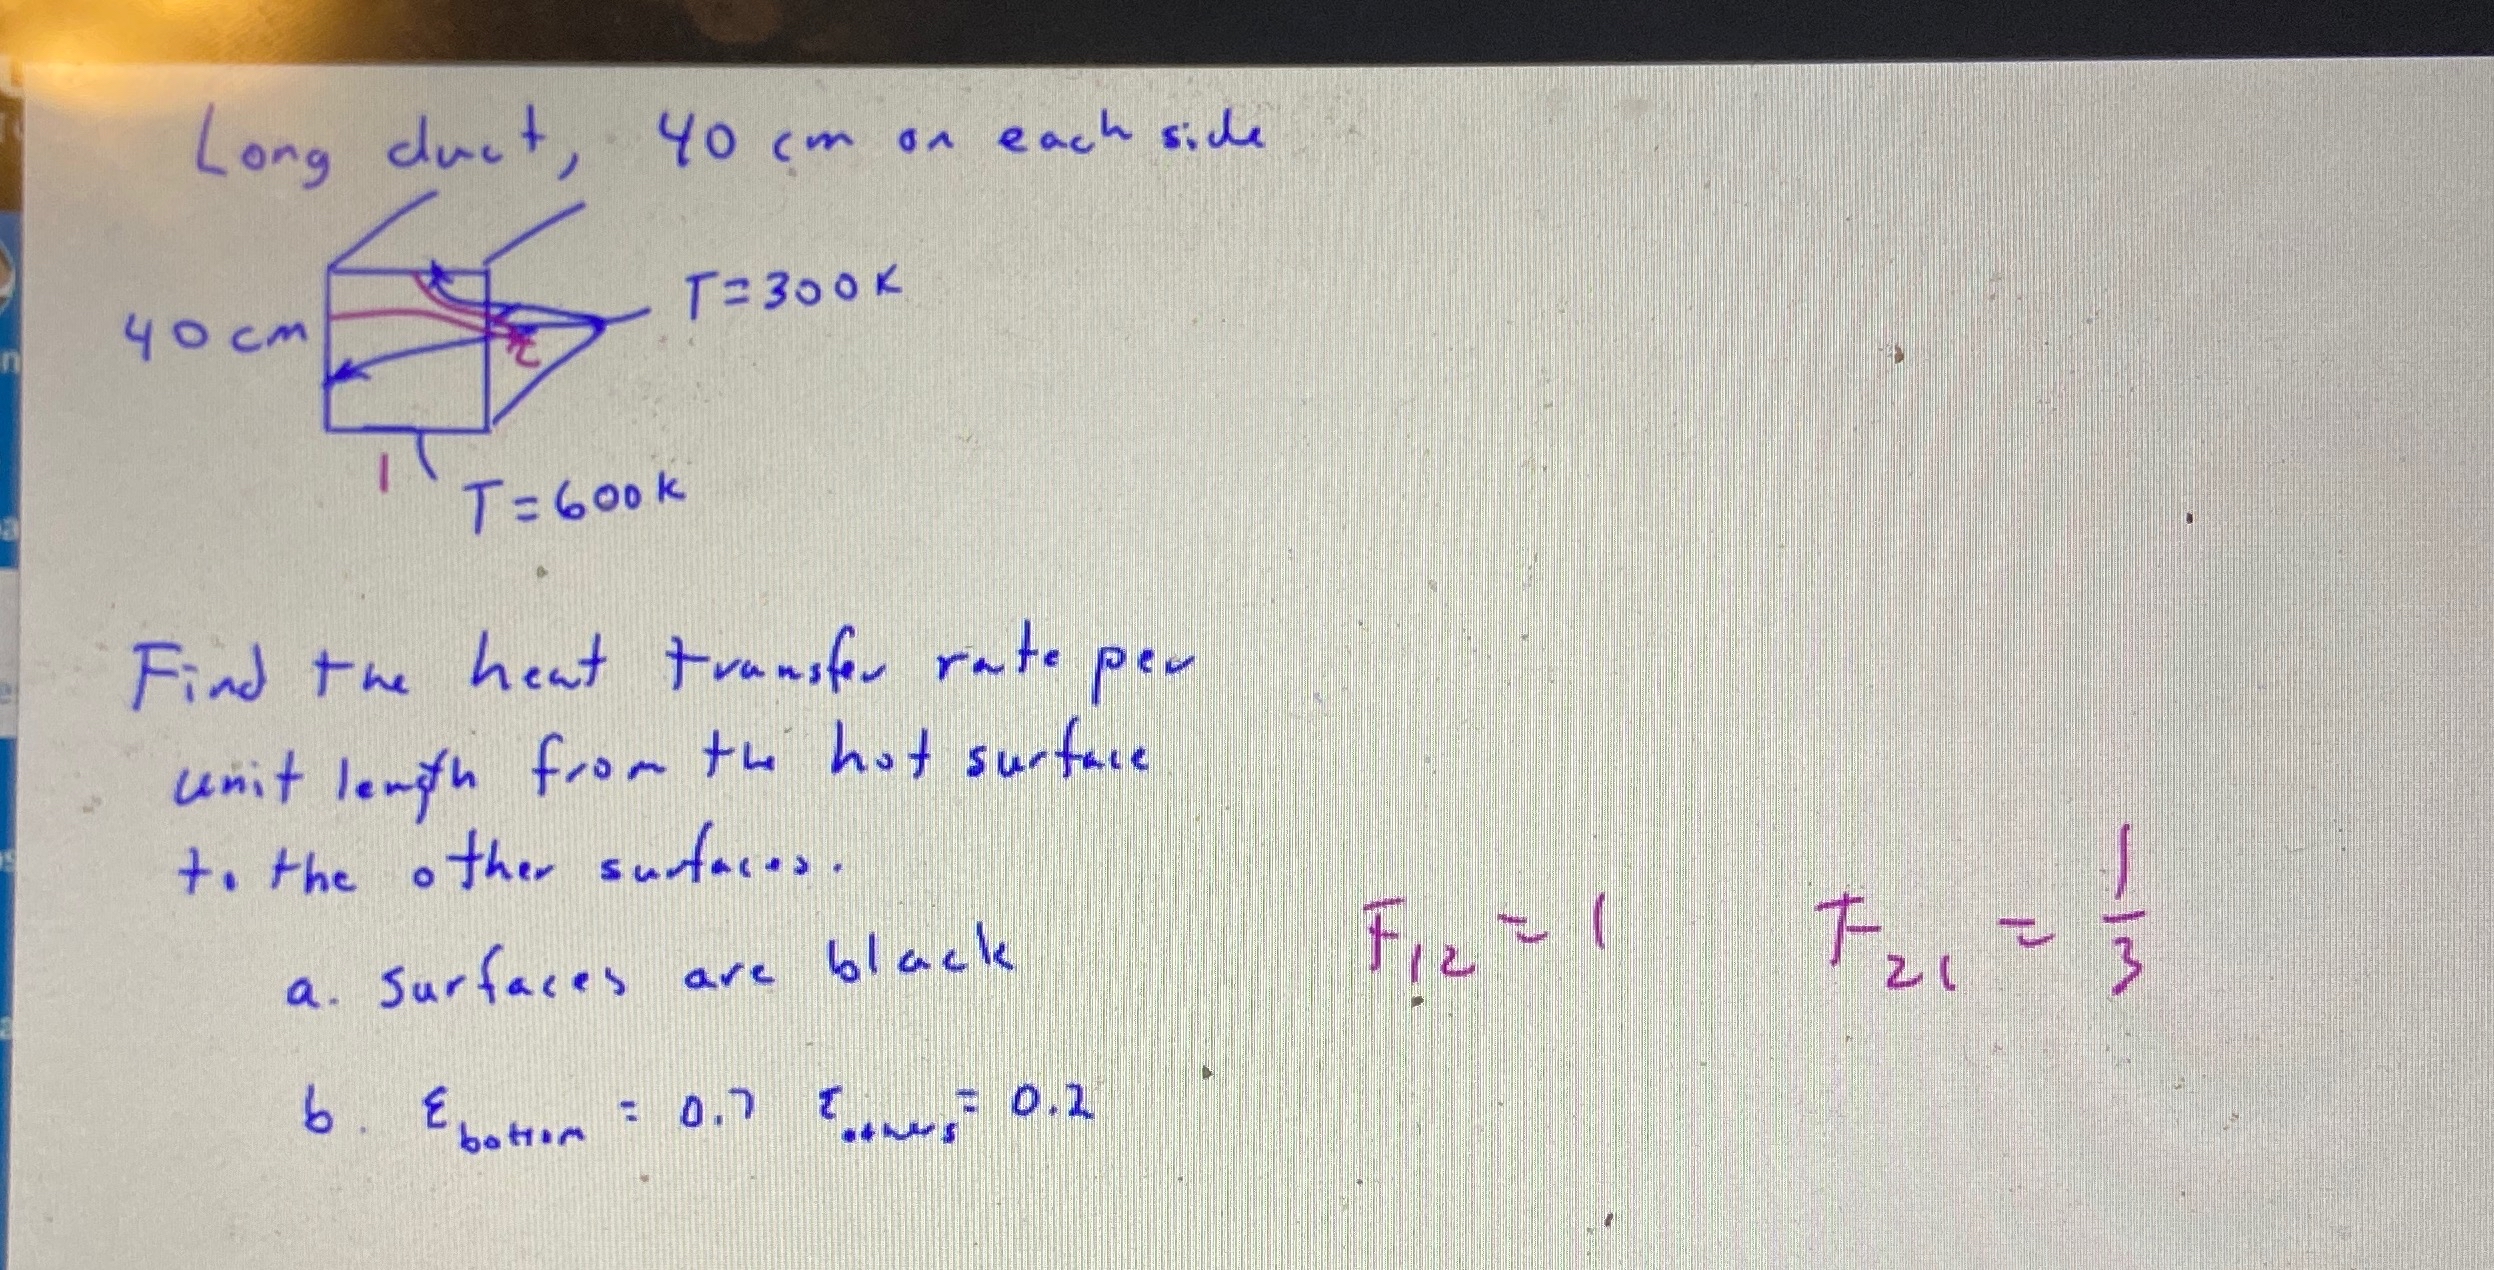 Long duct, 40 cm on each side
T=300K
40 cm
2
1
T=600K
Find the heat transfer rate per
unit length from the hot surface
to the other surfaces.
a. surfaces are black
F12 = 1 F21 = 1/3
b. εbottom = 0.7 εothers = 0.2